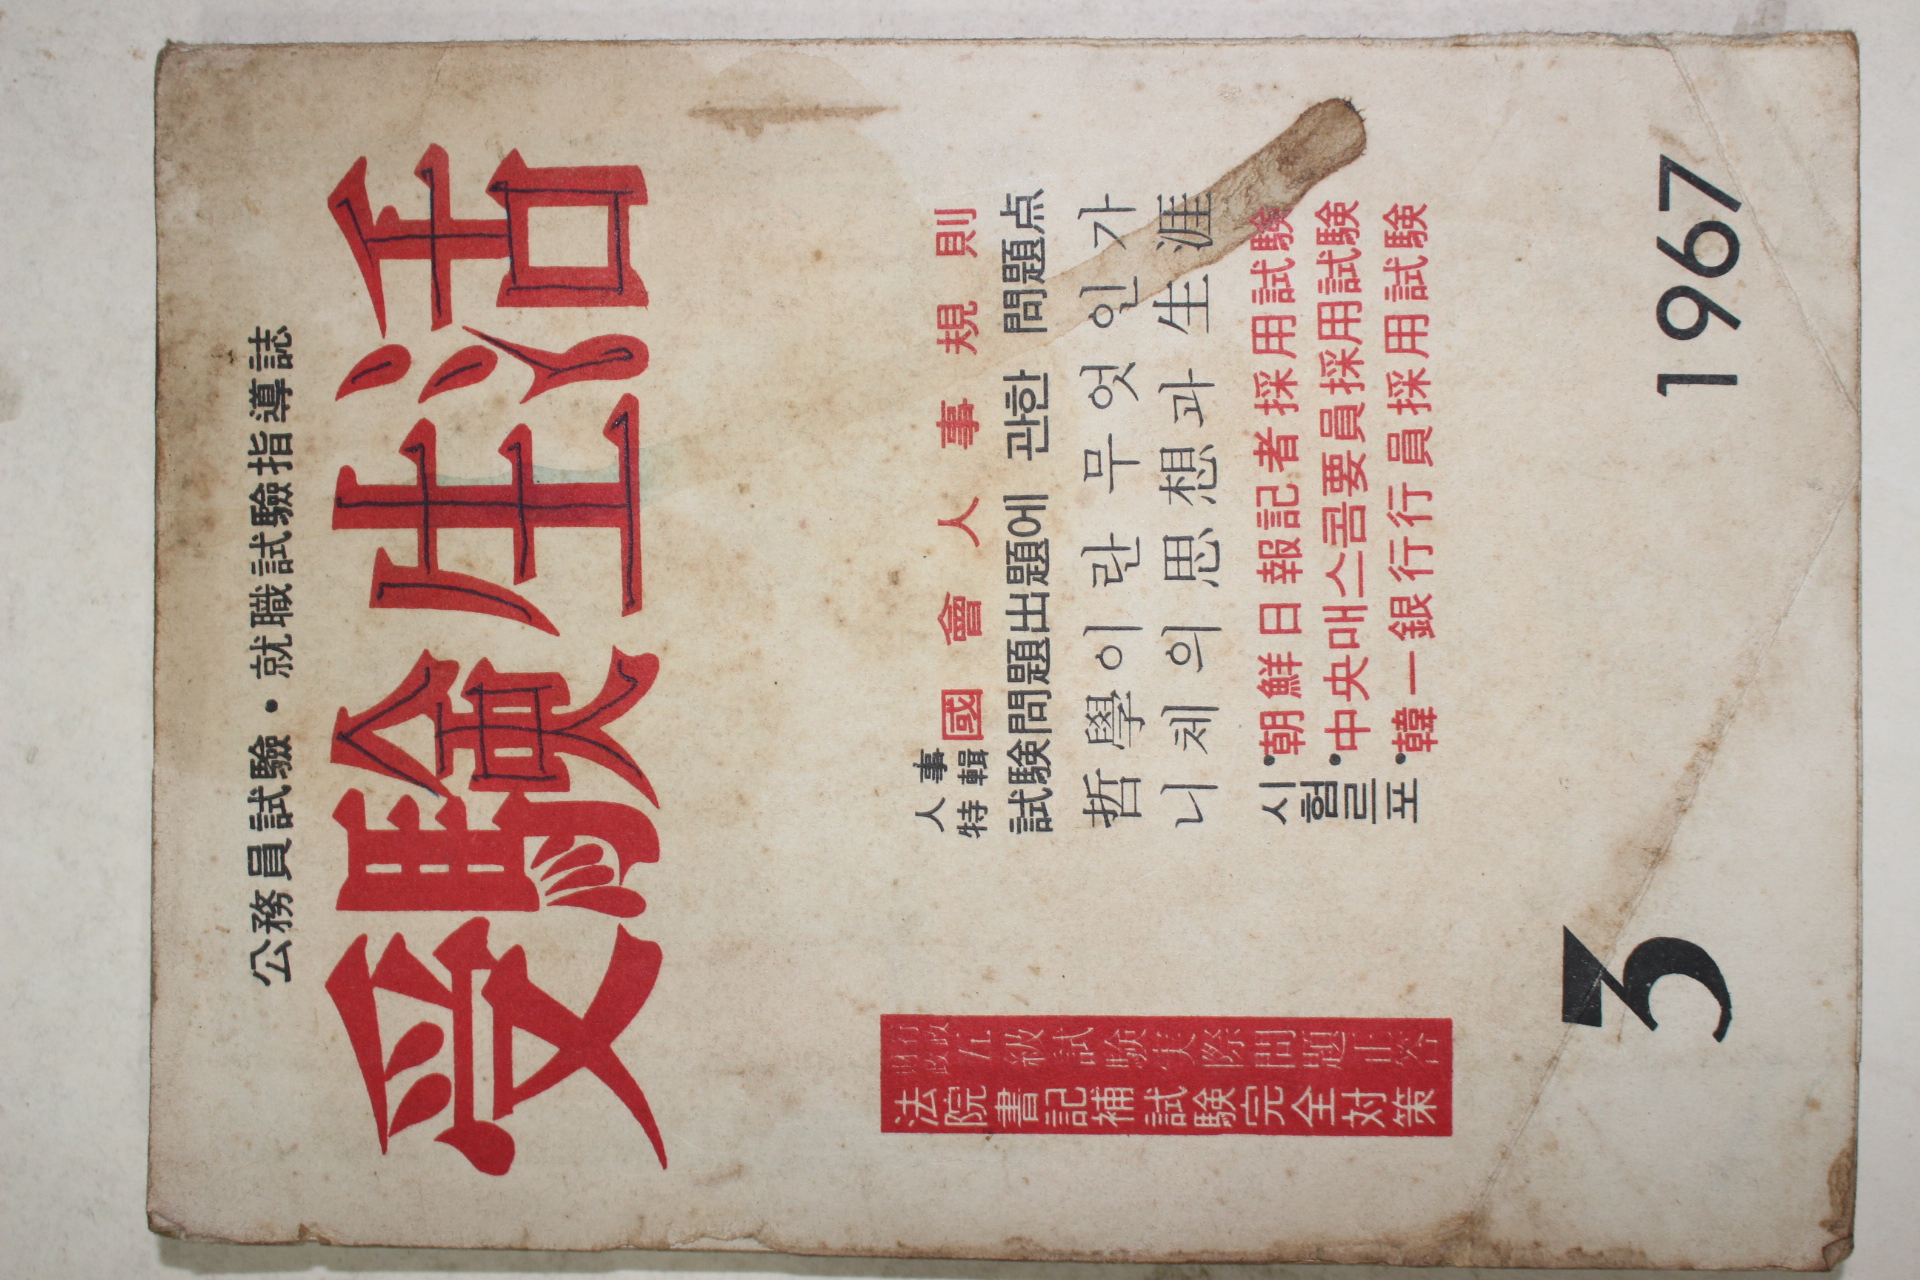 公務員試驗・就職試驗指導誌
受驗生活
人事
特輯
國會人事規則
試験問題出題에 관한 問題点
哲學이란 무엇인가
니체의 思想과 生涯
시험룰포
•朝鮮日報記者採用試験
•中央매스콤要員採用試験
•韓一銀行行員採用試験
行政
財政
五級試驗実際問題正答
法院書記補試験完全対策
3
1967